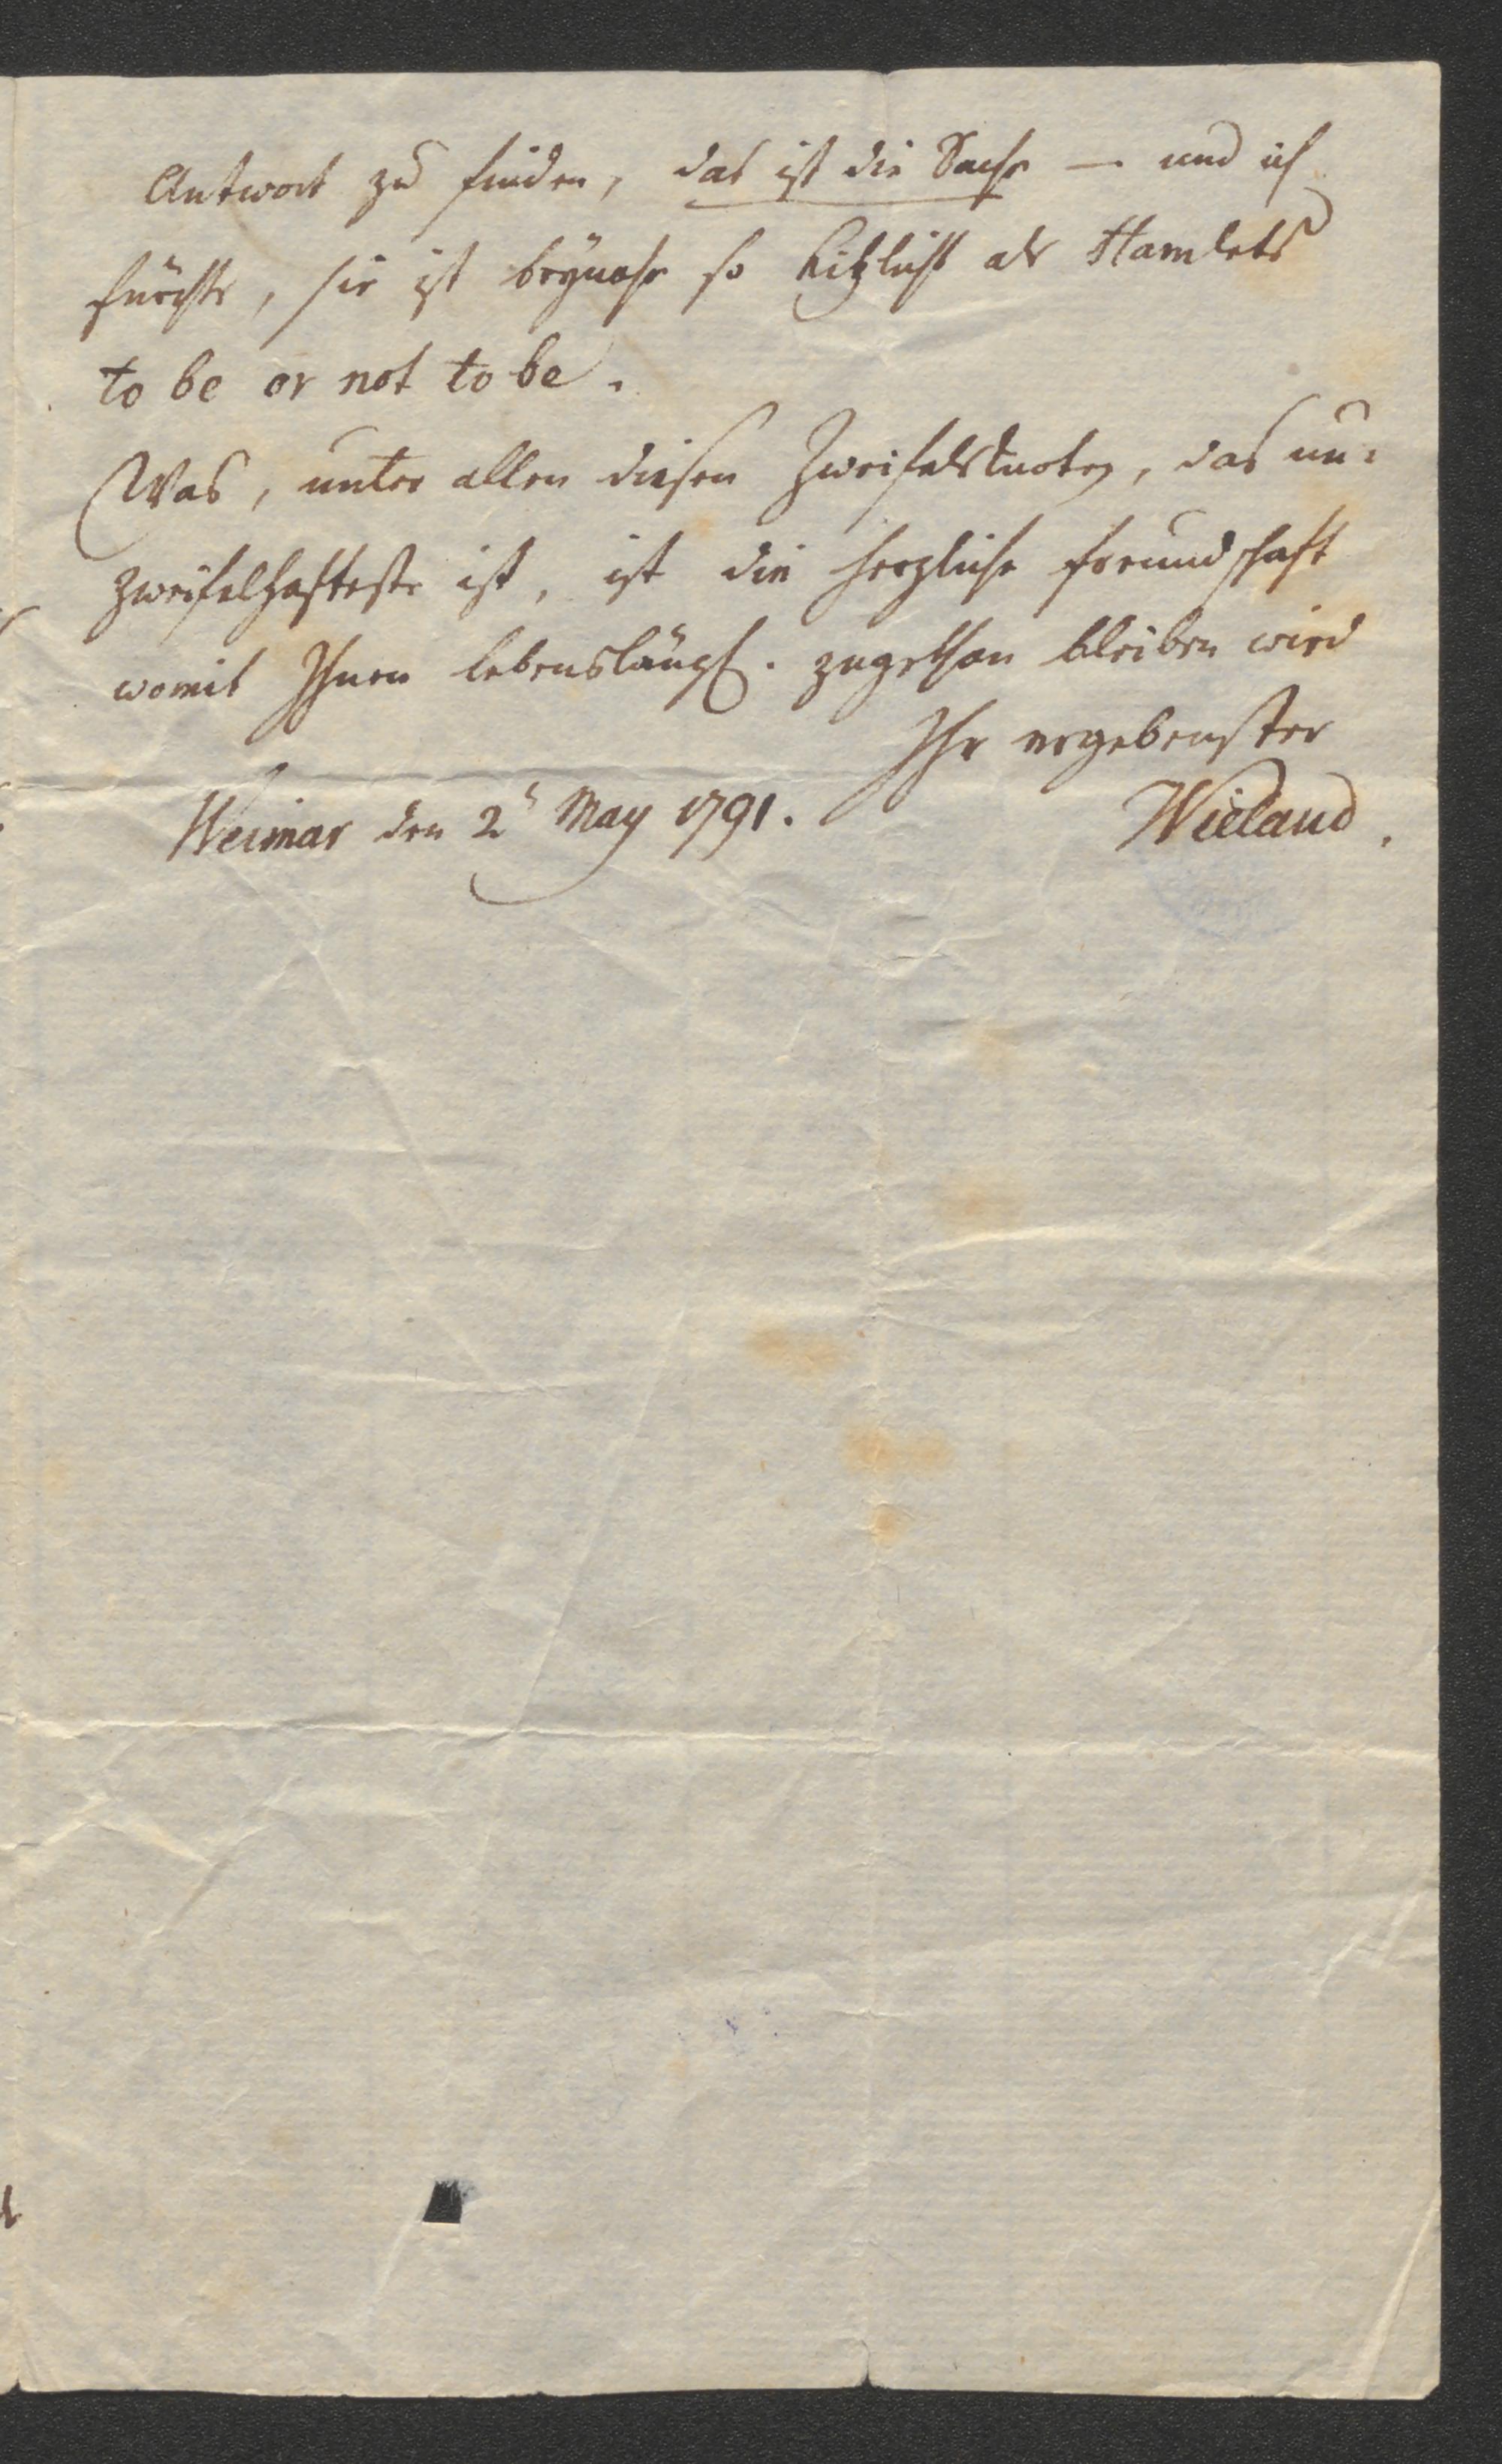 Antwort zu finden, das ist die Sache — und ich
fürchte, sie ist beynahe so kitzlicht als Hamlets
to be or not to be.
Was, unter allen diesen Zweifelsknoten, das un-
zweifelhafteste ist, ist die herzliche Freundschaft
womit Ihnen lebenslängl. zugethan bleiben wird
Ihr ergebenster
Weimar den 2 May 1791. Wieland.